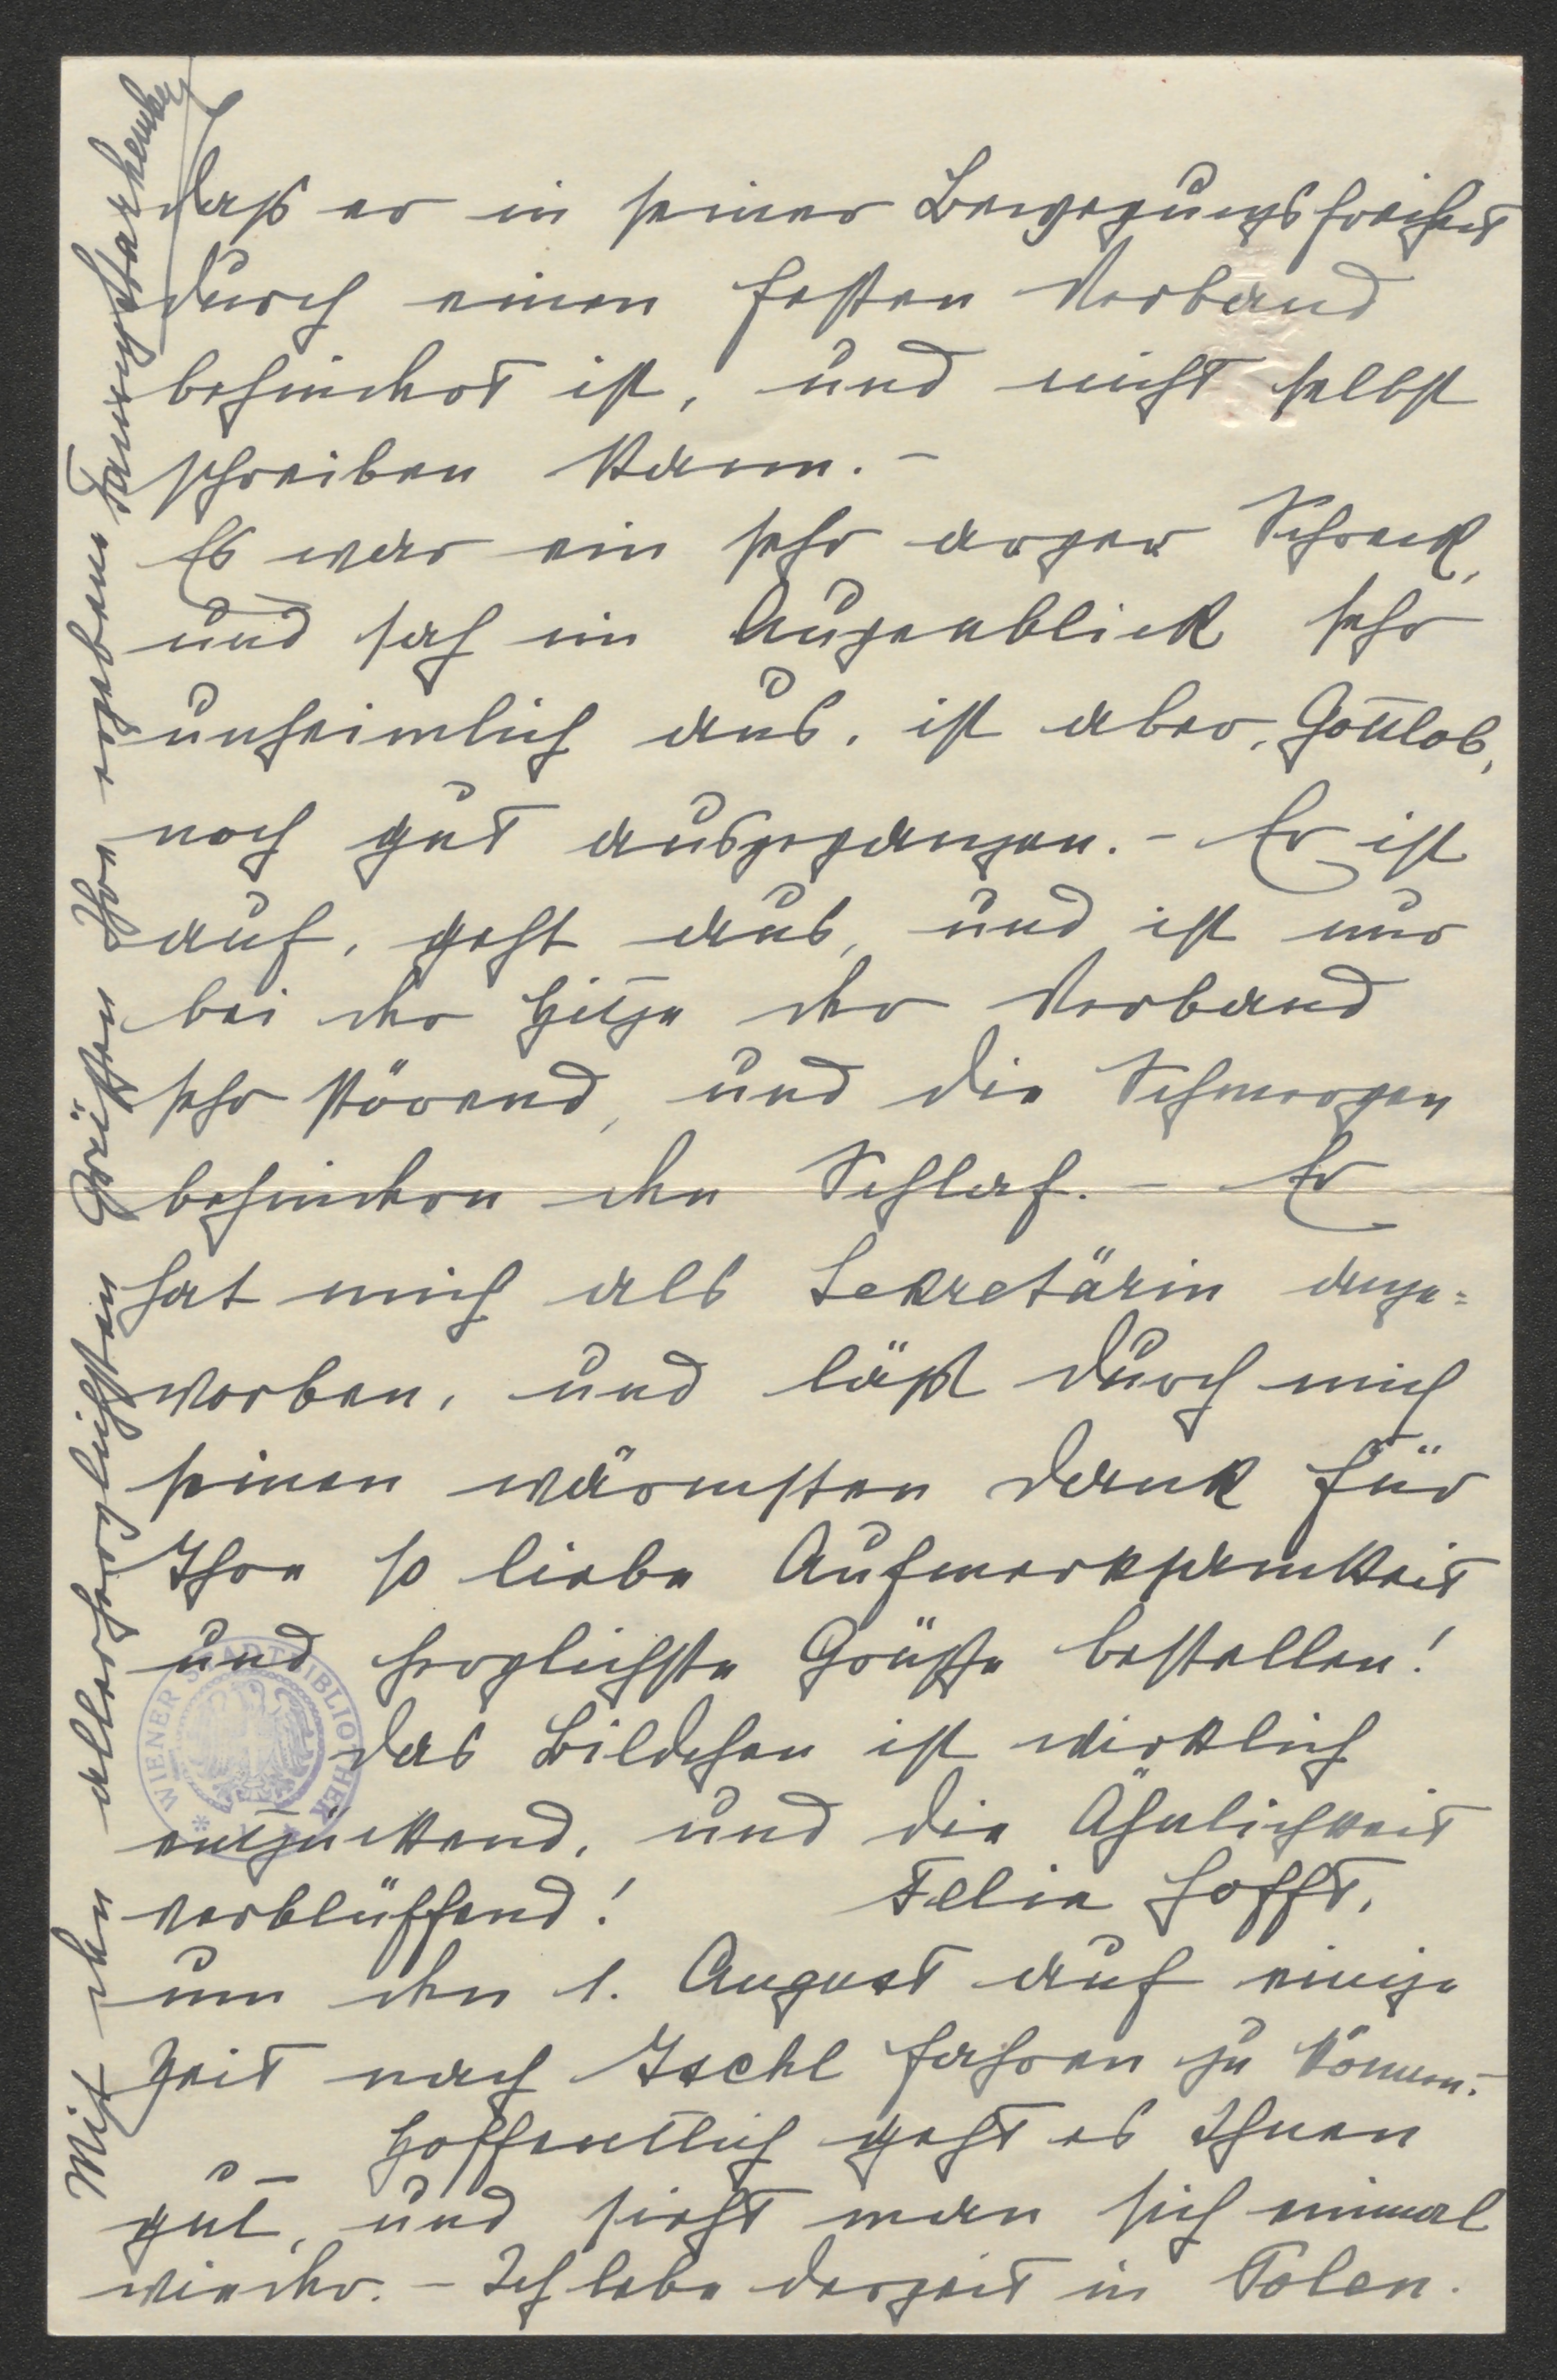 daß er in seiner Bewegungsfreiheit
durch einen festen Verband
behindert ist, und nicht selbst
schreiben kann. -
Es war ein sehr arger Schreck,
und sah im Augenblick sehr
unheimlich aus, ist aber, Gottlob,
noch gut ausgegangen. - Er ist
auf, geht aus, und ist nur
bei der Hitze der Verband
sehr störend, und die Schmerzen
behindern den Schlaf. - Er
hat mich als Sekretärin ange=
worben, und läßt durch mich
seinen wärmsten Dank für
Ihre so liebe Aufmerksamkeit
und herzlichste Grüße bestellen!
Das Bildchen ist wirklich
entzückend, und die Ähnlichkeit
verblüffend! Felix hofft,
um den 1. August auf einige
Zeit nach Ischl fahren zu können. -
Hoffentlich geht es Ihnen
gut, und sieht man sich einmal
wieder. - Ich lebe derzeit in Polen.
Mit den allerherzlichsten Grüßen Ihre ergebene Fanny Starhemberg
WIENER STADTBIBLIOTHEK